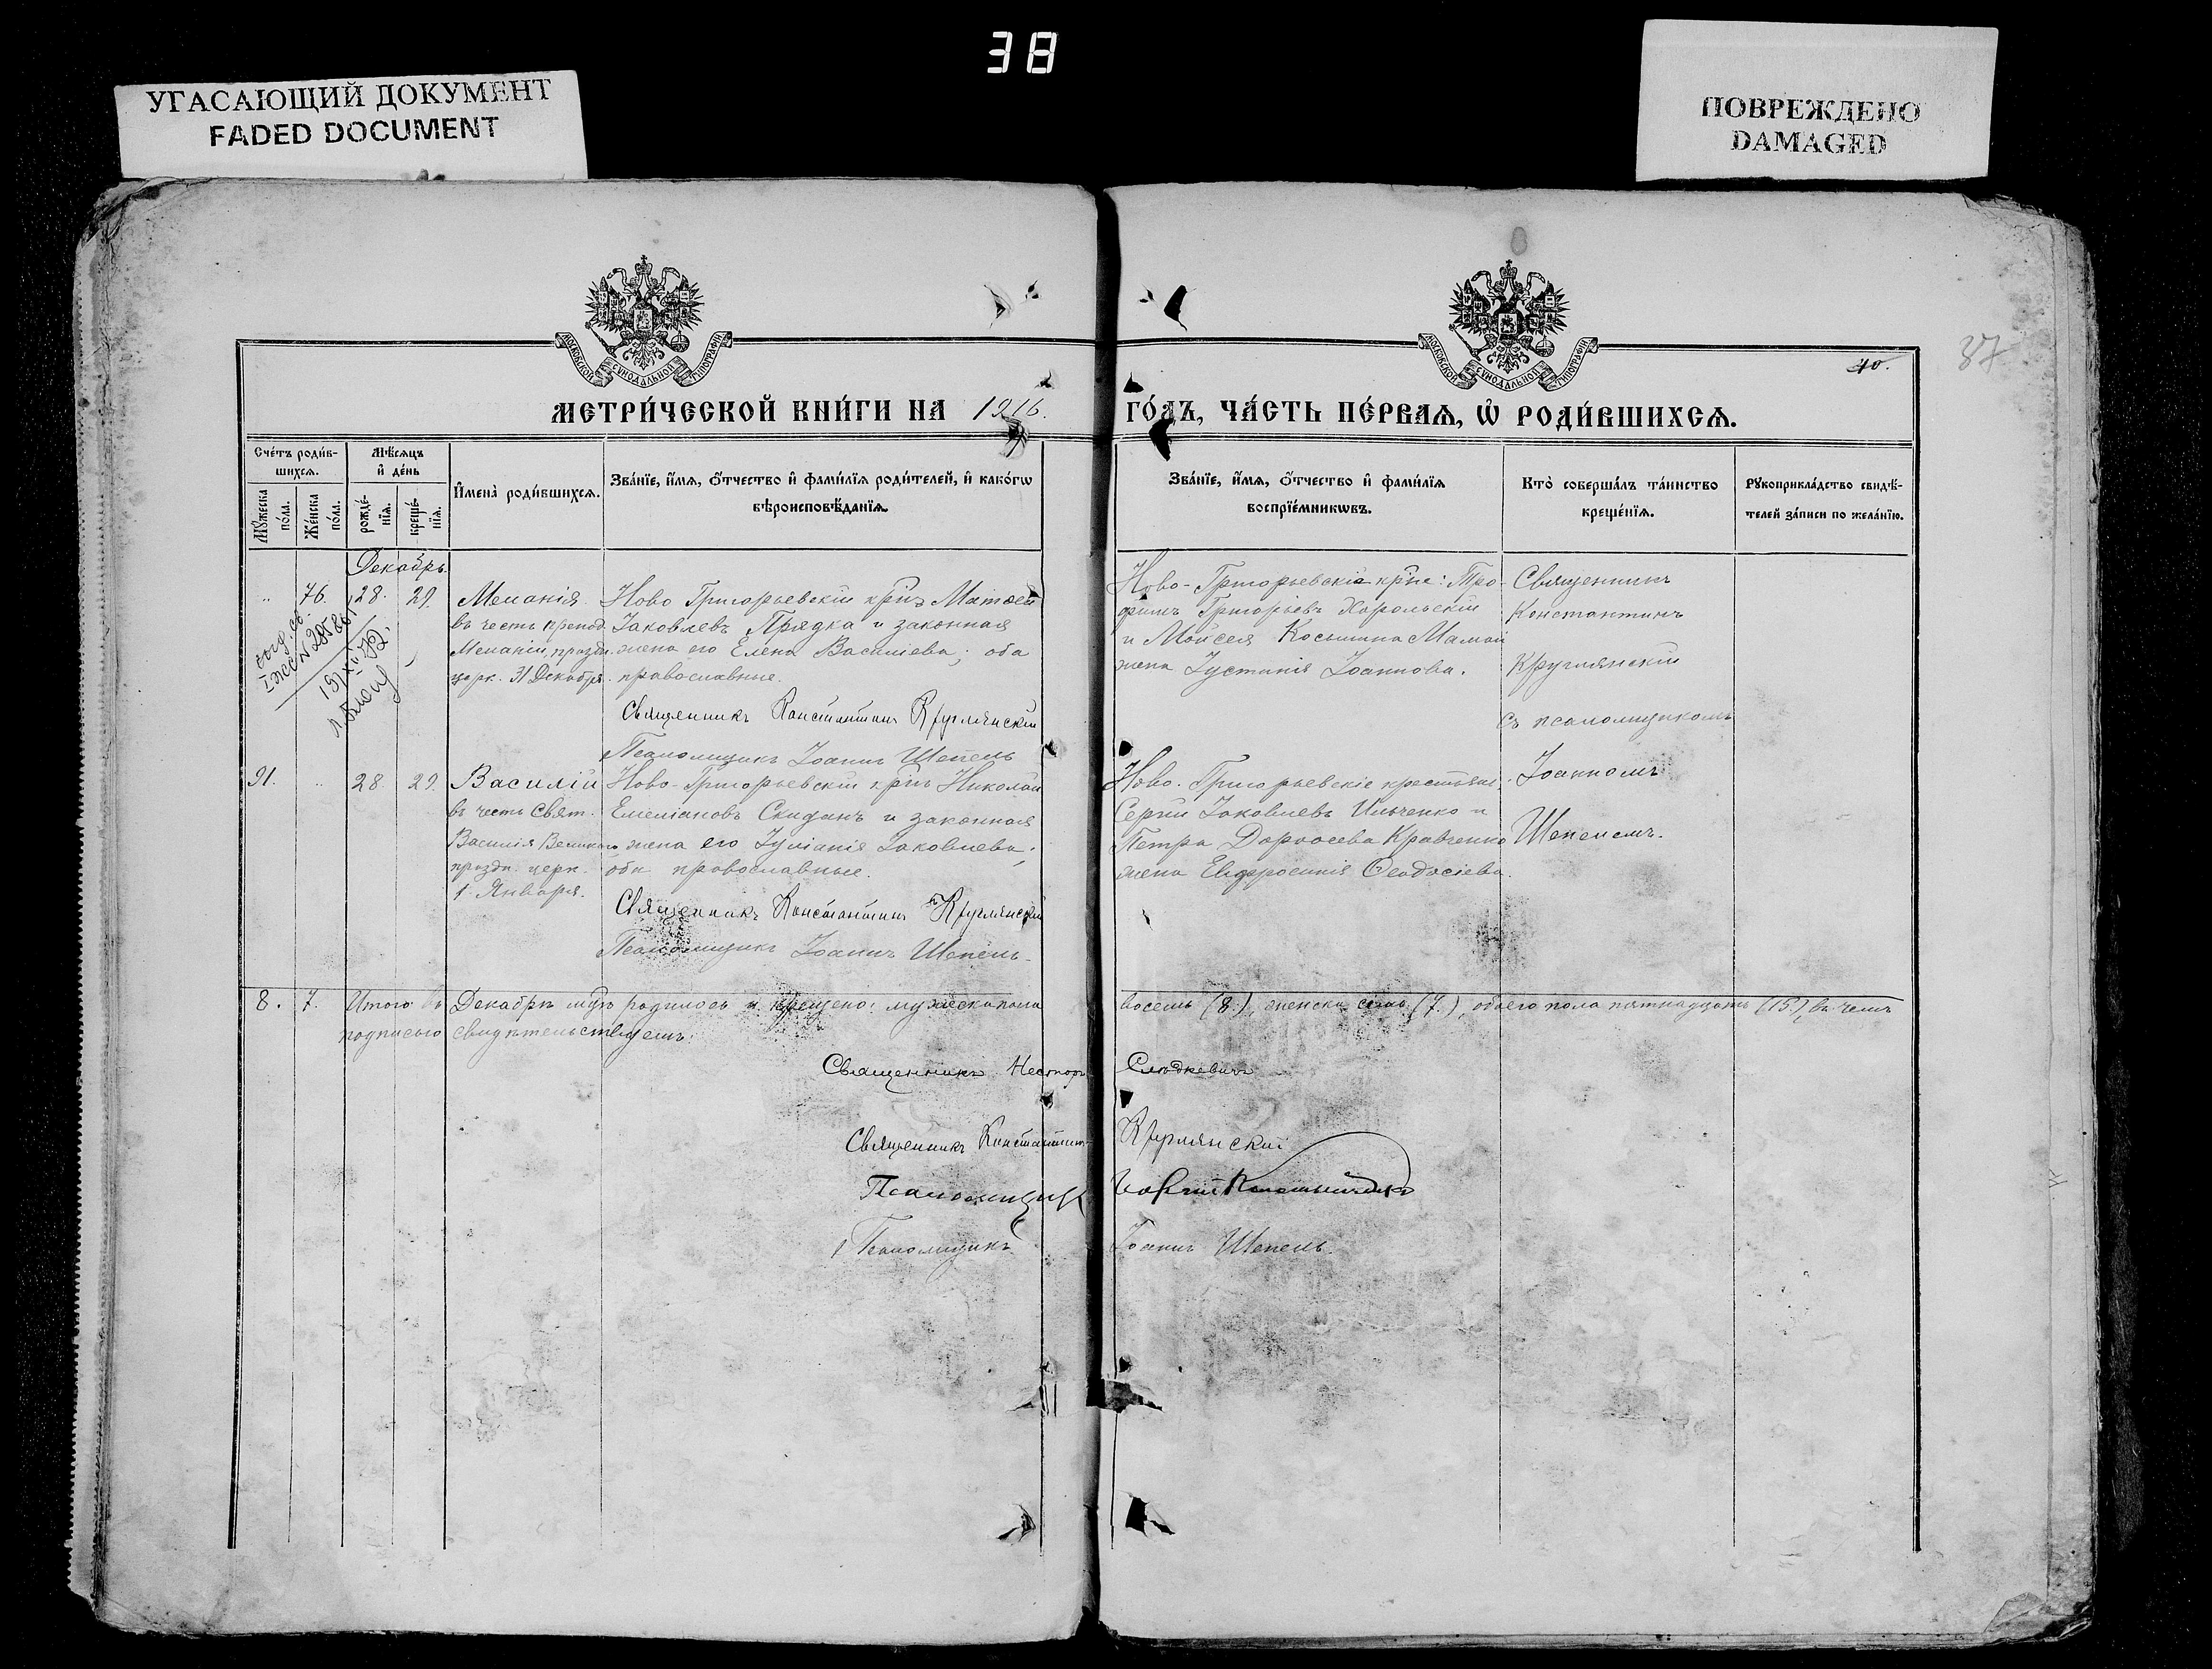 38
УГАСАЮЩИЙ ДОКУМЕНТ
FADED DOCUMENT
ПОВРЕЖДЕНО
DAMAGED
МОСКОВСКОЙ СУНОДАЛЬНОЙ ТИПОГРАФІИ
МОСКОВСКОЙ СУНОДАЛЬНОЙ ТИПОГРАФІИ
40.
37
МЕТРИ́ЧЕСКОЙ КНИ́ГИ НА 1916.
ГО́ДЪ, ЧА́СТЬ ПЕ́РВАѦ, Ѡ҆ РОДИ́ВШИХСѦ.
Сче́тъ роди́в-
шихсѧ.
Мꙋ́жеска
по́ла.
Же́нска
по́ла.
Мѣ́сѧцъ
и҆ де́нь
рожде́-
нїѧ.
креще́-
нїѧ.
И҆мена̀ роди́вшихсѧ.
Зва́нїе, и҆́мѧ, ѻ҆́тчество и҆ фами́лїѧ роди́телей, и҆ како́гѡ
вѣроисповѣ́данїѧ.
Зва́нїе, и҆́мѧ, ѻ҆́тчество и҆ фами́лїѧ
воспрїе́мникѡвъ.
Кто̀ соверша́лъ та́инство
креще́нїѧ.
Рꙋкоприкла́дство свидѣ́-
телей за́писи по жела́нїю.
Декабрь.
76. 28. 29.
Меланія
въ честь препод.
Меланіи, праздн.
церк. 31 Декабря.
Ново Григорьевскій кр-нъ Матѳей
Іаковлевъ Прядка и законная
жена его Елена Василіева; оба
православные.
Священникъ Константинъ Круглянскій
Псаломщикъ Іоаннъ Шепель
Ново-Григорьевскіе кр-не: Тро-
фимъ Григорьевъ Хорольскій
и Моисея Косьмина Мамай
жена Іустинія Іоаннова.
Священникъ
Константинъ
Круглянскій
съ псаломщикомъ
Іоанномъ
Шепелемъ.
91. 28. 29.
Василій
въ честь Свят.
Василія Великаго,
праздн. церк.
1. Января.
Ново-Григорьевскій кр-нъ Николай
Емеліановъ Скиданъ и законная
жена его Іуліанія Іаковлева;
оба православные.
Священникъ Константинъ Круглянскій
Псаломщикъ Іоаннъ Шепель.
Ново-Григорьевскіе крестьяне
Сергій Іаковлевъ Ильченко и
Петра Дороѳеева Кравченко
жена Евфросинія Ѳеодосіева.
8. 7. Итого въ Декабрѣ м-цѣ родилось и крещено: мужеска пола
восемь (8.), женска семь (7.), обоего пола пятнадцать (15.), въ чемъ
подписью свидѣтельствуемъ:
Священникъ Несторъ
Священникъ Константинъ Круглянскій
Псаломщикъ
Псаломщикъ Іоаннъ Шепель.